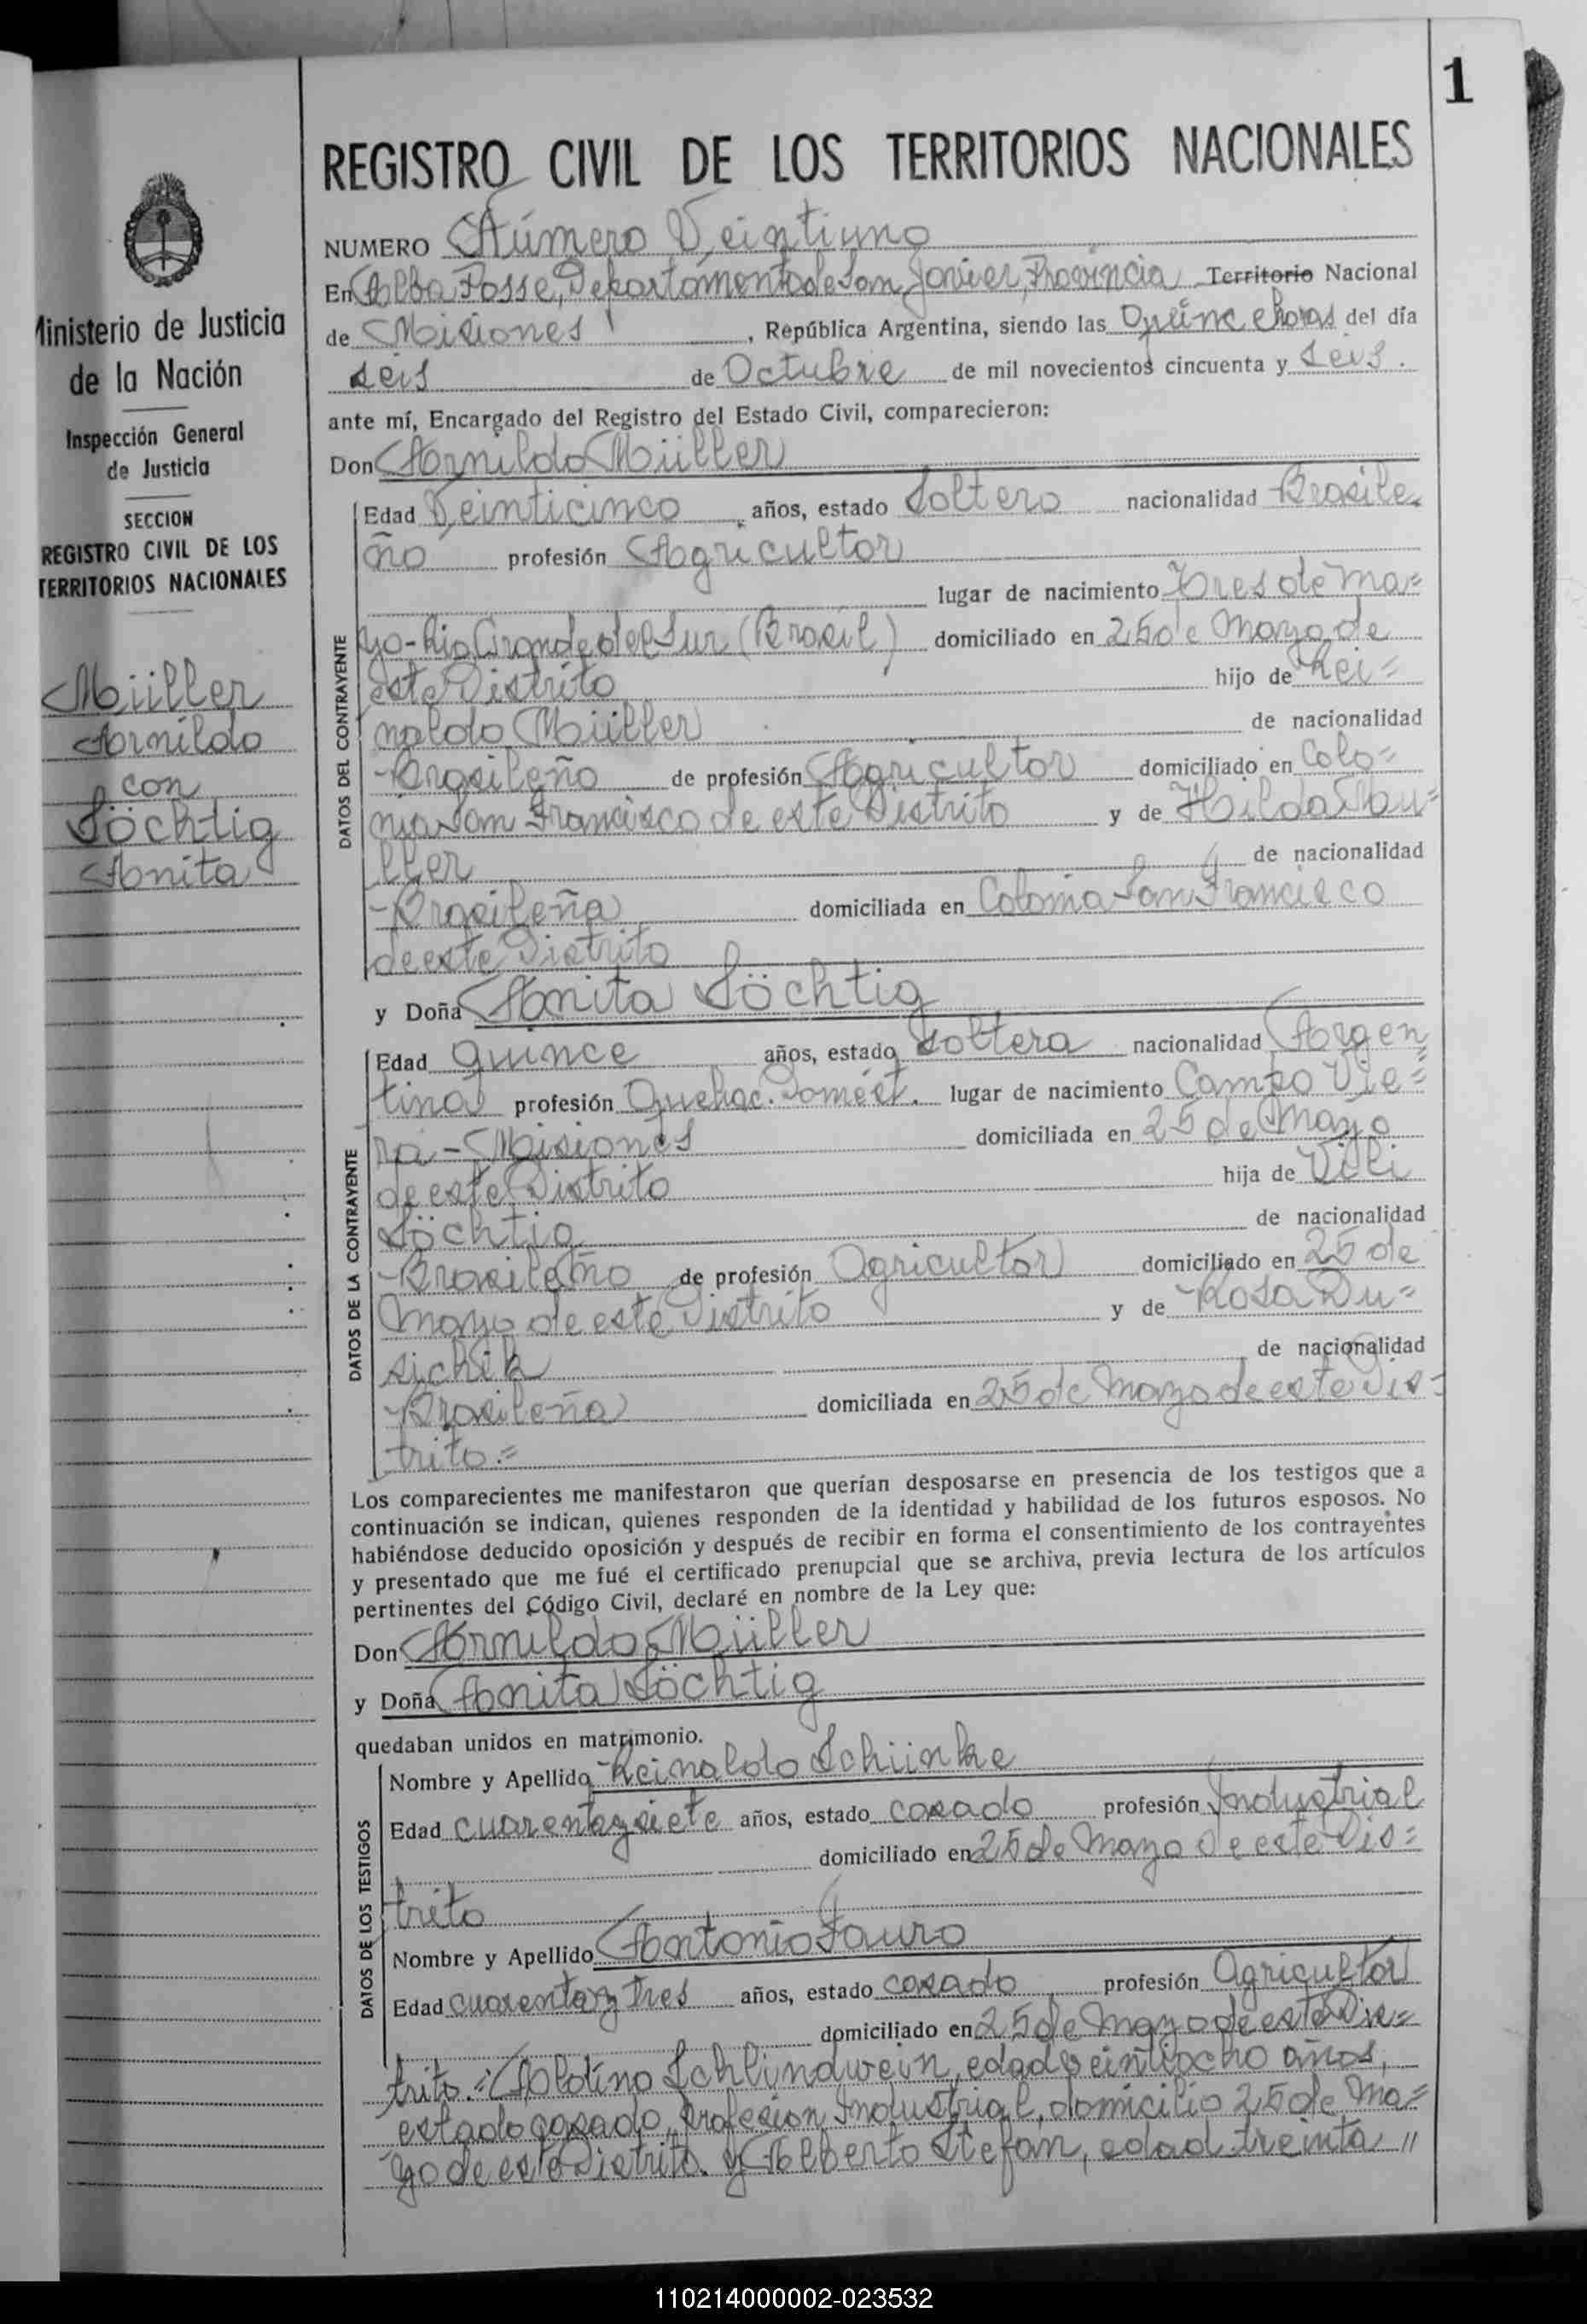 1
REGISTRO CIVIL DE LOS TERRITORIOS NACIONALES
NUMERO Número Veintiuno
En Alba Posse, Departamento de San Javier, Provincia Territorio Nacional
de Misiones, República Argentina, siendo las Quince horas del día
seis de Octubre de mil novecientos cincuenta y seis.
ante mí, Encargado del Registro del Estado Civil, comparecieron:
Don Arnildo Müller
Edad Veinticinco años, estado Soltero nacionalidad Brasile
ño profesión Agricultor
lugar de nacimiento Tres de Ma=
yo-Rio Grande del Sur (Brasil) domiciliado en 25 de Mayo de
este Distrito hijo de Rei=
naldo Müller de nacionalidad
Brasileño de profesión Agricultor domiciliado en Colo=
nia San Francisco de este Distrito y de Hilda
ller de nacionalidad
Brasileña domiciliada en Colonia San Francisco
de este Distrito
y Doña Anita Söchtig
Edad quince años, estado Soltera nacionalidad Argen
tina profesión Quehac. Domést. lugar de nacimiento Campo Vie=
ra-Misiones domiciliada en 25 de Mayo
de este Distrito hija de Vili
Söchtig de nacionalidad
Brasileño de profesión Agricultor domiciliado en 25 de
Mayo de este Distrito y de Rosa Du=
sichik de nacionalidad
Brasileña domiciliada en 25 de Mayo de este Dis=
trito.=
DATOS DEL CONTRAYENTE
DATOS DE LA CONTRAYENTE
Los comparecientes me manifestaron que querían desposarse en presencia de los testigos que a
continuación se indican, quienes responden de la identidad y habilidad de los futuros esposos. No
habiéndose deducido oposición y después de recibir en forma el consentimiento de los contrayentes
y presentado que me fué el certificado prenupcial que se archiva, previa lectura de los artículos
pertinentes del Código Civil, declaré en nombre de la Ley que:
Don Arnildo Müller
y Doña Anita Söchtig
quedaban unidos en matrimonio.
Nombre y Apellido Reinaldo Schünke
Edad cuarenta y siete años, estado casado profesión Industrial
domiciliado en 25 de Mayo de este Dis=
trito
Nombre y Apellido Antonio Fauro
Edad cuarenta y tres años, estado casado profesión Agricultor
domiciliado en 25 de Mayo de este Dis=
trito.= Aldino Schlindwein, edad veintiocho años,
estado casado, profesion Industrial, domicilio 25 de Ma=
yo de este Distrito. y Alberto Stefan, edad treinta "
DATOS DE LOS TESTIGOS
Ministerio de Justicia
de la Nación
Inspección General
de Justicia
SECCION
REGISTRO CIVIL DE LOS
TERRITORIOS NACIONALES
Müller
Arnildo
con
Söchtig
Anita
110214000002-023532